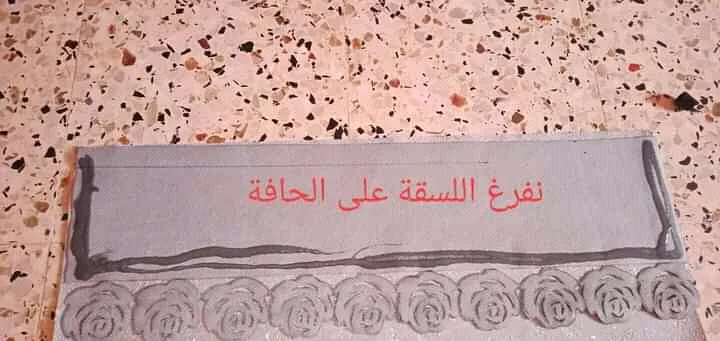 نفرغ اللسقة على الحافة